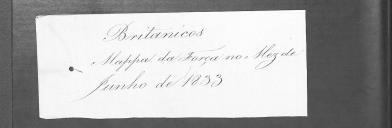 Britanicos
Mappa da Força no Mez de
Junho de 1833